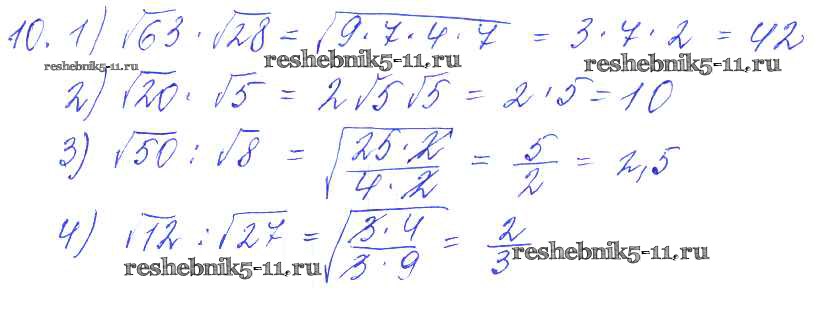 10. 1) √63 · √28 = √(9·7·4·7) = 3·7·2 = 42
reshebnik5-11.ru reshebnik5-11.ru reshebnik5-11.ru
2) √20 · √5 = 2√5√5 = 2·5 = 10
3) √50 : √8 = √(25·2/4·2) = 5/2 = 2,5
4) √12 : √27 = √(3·4/3·9) = 2/3
reshebnik5-11.ru reshebnik5-11.ru